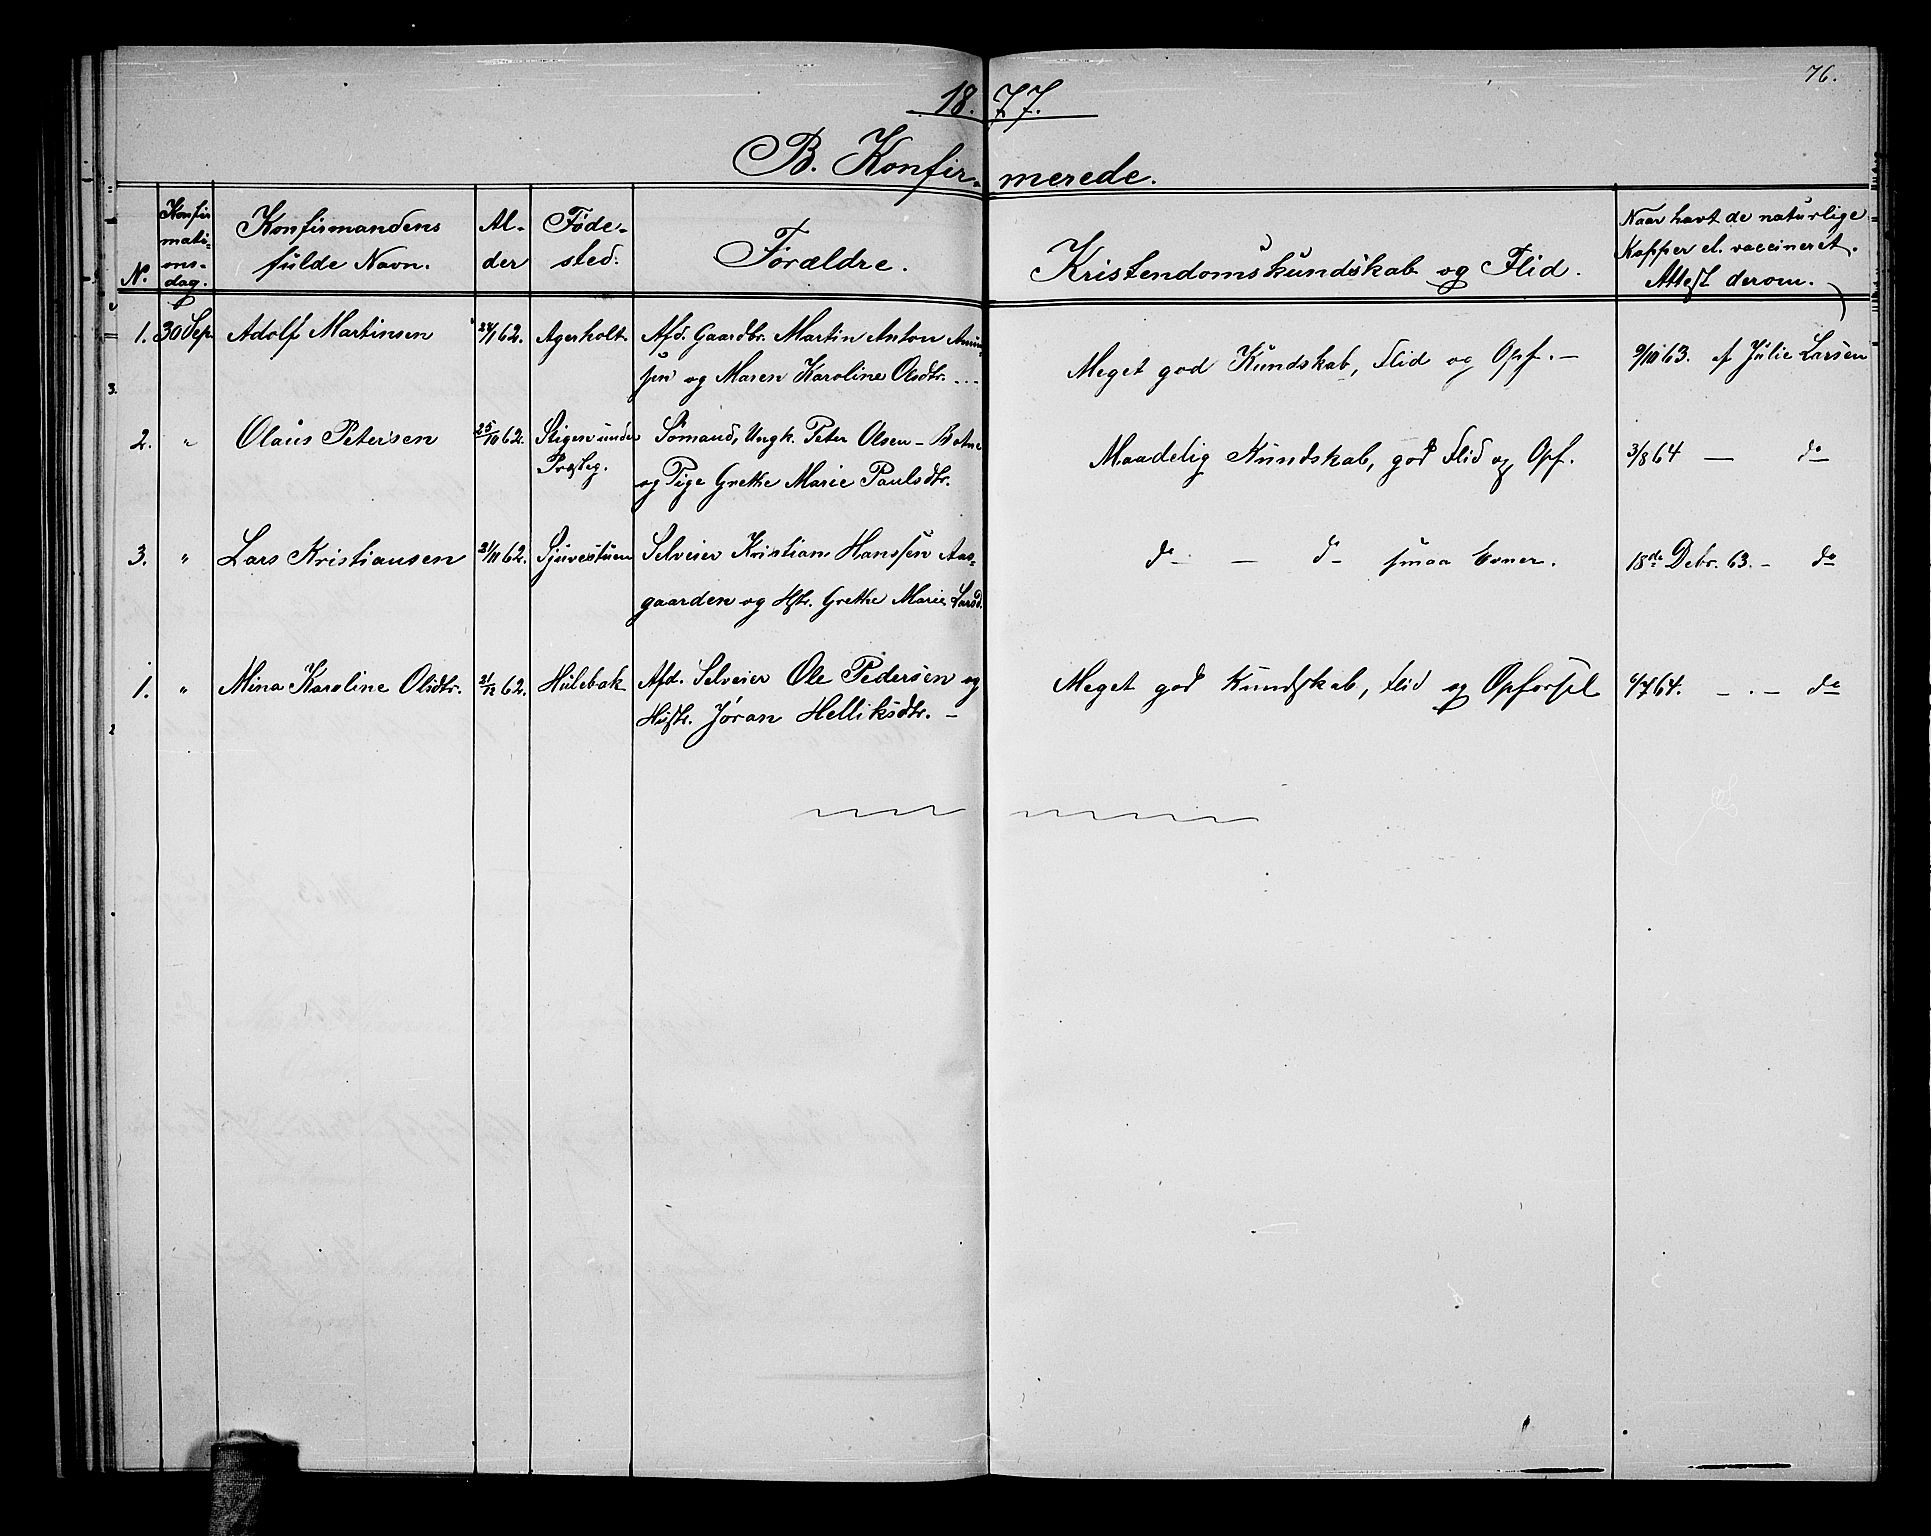 76.
1877.
B. Konfirmerede.
N.
Konfir
mati-
ons-
dag.
Konfirmandens
fulde Navn.
Al-
der
Føde-
sted.
Forældre.
Kristendomskundskab og Flid.
Naar havt de naturlige
Kopper el. vaccineret.
Attest derom.
1. 30 Sep. Adolf Martinsen /1 62. Agerholt Afd. Gaardbr. Martin Anton
og Maren Karoline Olsdtr. ...
Meget god Kundskab, Flid og Opf. — 9/10 63. af Julie Larsen
2. " Olaus Petersen 25/10 62. Stigen under Sömand, Ungk. Peter Olsen - Botne
Præsteg. og Pige Grethe Marie Paulsdtr.
Maadelig Kundskab, god Flid og Opf. 3/8 64 — do
3. " Lars Kristiansen 21/11 62. Sjuvestuen Selveier Kristian Hanssen Aas-
gaarden og Hstr. Grethe Marie Larsd.
do — do smaa Evner. 18de Debr. 63. — do
1. " Mina Karoline Olsdtr. 21/12 62. Hulebak Afd. Selveier Ole Pedersen og
Hustr. Jøran Helliksdtr. —
Meget god Kundskab, Flid og Opførsel 4/7 64. — . — do